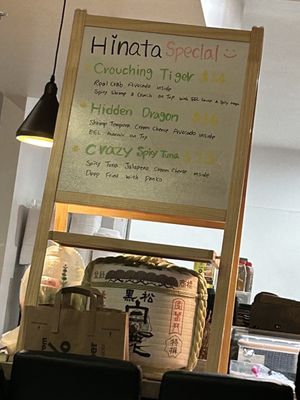 Hinata Special
Crouching Tiger
Real Crab Avocado inside
Spicy Shrimp & Crunch on Top with EEL Sauce & Spicy mayo
Hidden Dragon
Shrimp Tempura Cream Cheese Avocado inside
EEL Avocado on Top
Crazy Spicy Tuna
Spicy Tuna Jalapeno Cream Cheese inside
Deep Fried with Panko
黒松
白鹿
特撰